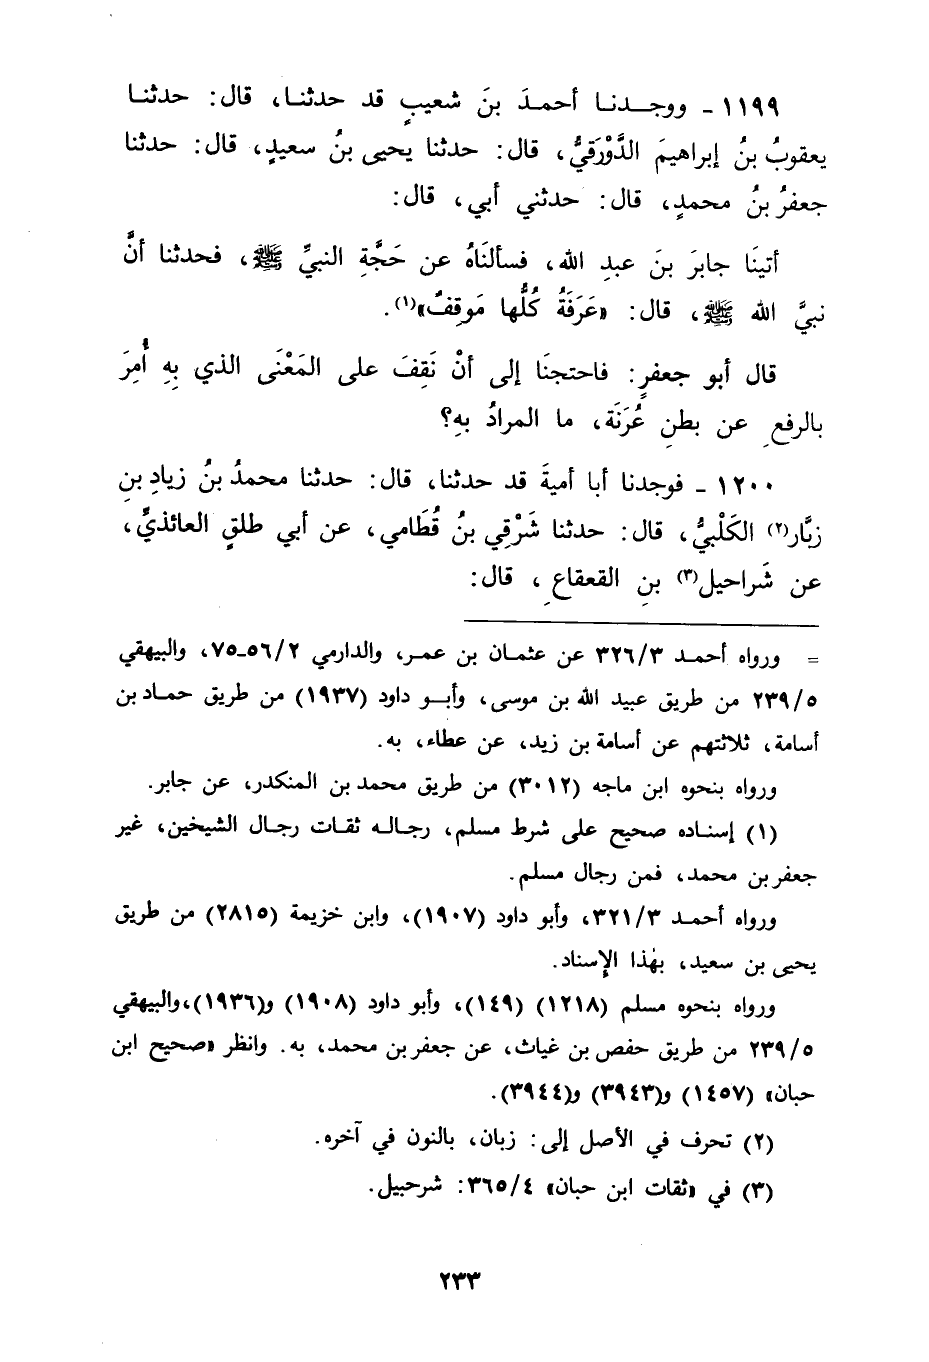 ١١٩٩ ـ ووجــدنـا أحمـدَ بنَ شعيبٍ قد حدثنـا، قال: حدثنـا
يعقوبُ بنُ إبراهيمَ الدَّوْرَقيُّ، قال: حدثنا يحيى بنُ سعيدٍ، قال: حدثنا
جعفرُ بنُ محمدٍ، قال: حدثني أبي، قال:
أتينَا جابرَ بنَ عبدِ الله، فسألنَاهُ عن حَجَّةِ النبيِّ ﷺ، فحدثنا أنَّ
نبيَّ الله ﷺ، قال: «عَرَفَةُ كُلُّها مَوقِفٌ»(١).
قال أبو جعفرٍ: فاحتجنَا إلى أنْ نَقِفَ على المَعْنَى الذي بِهِ أُمِرَ
بالرفعِ عن بطنِ عُرَنَة، ما المرادُ بهِ؟
١٢٠٠ ـ فوجدنا أبا أميةَ قد حدثنا، قال: حدثنا محمدُ بنُ زيادِ بنِ
زبَّار(٢) الكَلْبيُّ، قال: حدثنا شَرْقِي بنُ قُطَامي، عن أبي طلقٍ العائذيِّ،
عن شَراحيل(٣) بنِ القعقاعِ، قال:
= ورواه أحمـد ٣٢٦/٣ عن عثمـان بن عمر، والدارمي ٥٦/٢ـ٧٥، والبيهقي
٢٣٩/٥ من طريق عبيد الله بن موسى، وأبـو داود (١٩٣٧) من طريق حمـاد بن
أسامة، ثلاثتهم عن أسامة بن زيد، عن عطاء، به.
ورواه بنحوه ابن ماجه (٣٠١٢) من طريق محمد بن المنكدر، عن جابر.
(١) إسنـاده صحيح على شرط مسلم، رجـالـه ثقـات رجال الشيخين، غير
جعفر بن محمد، فمن رجال مسلم.
ورواه أحمـد ٣٢١/٣، وأبو داود (١٩٠٧)، وابن خزيمة (٢٨١٥) من طريق
يحيى بن سعيد، بهٰذا الإسناد.
ورواه بنحوه مسلم (١٢١٨) (١٤٩)، وأبو داود (١٩٠٨) و(١٩٣٦)،والبيهقي
٢٣٩/٥ من طريق حفص بن غياث، عن جعفر بن محمد، به. وانظر «صحيح ابن
حبان» (١٤٥٧) و(٣٩٤٣) و(٣٩٤٤).
(٢) تحرف في الأصل إلى: زبان، بالنون في آخره.
(٣) في «ثقات ابن حبان» ٣٦٥/٤: شرحبيل.
٢٣٣